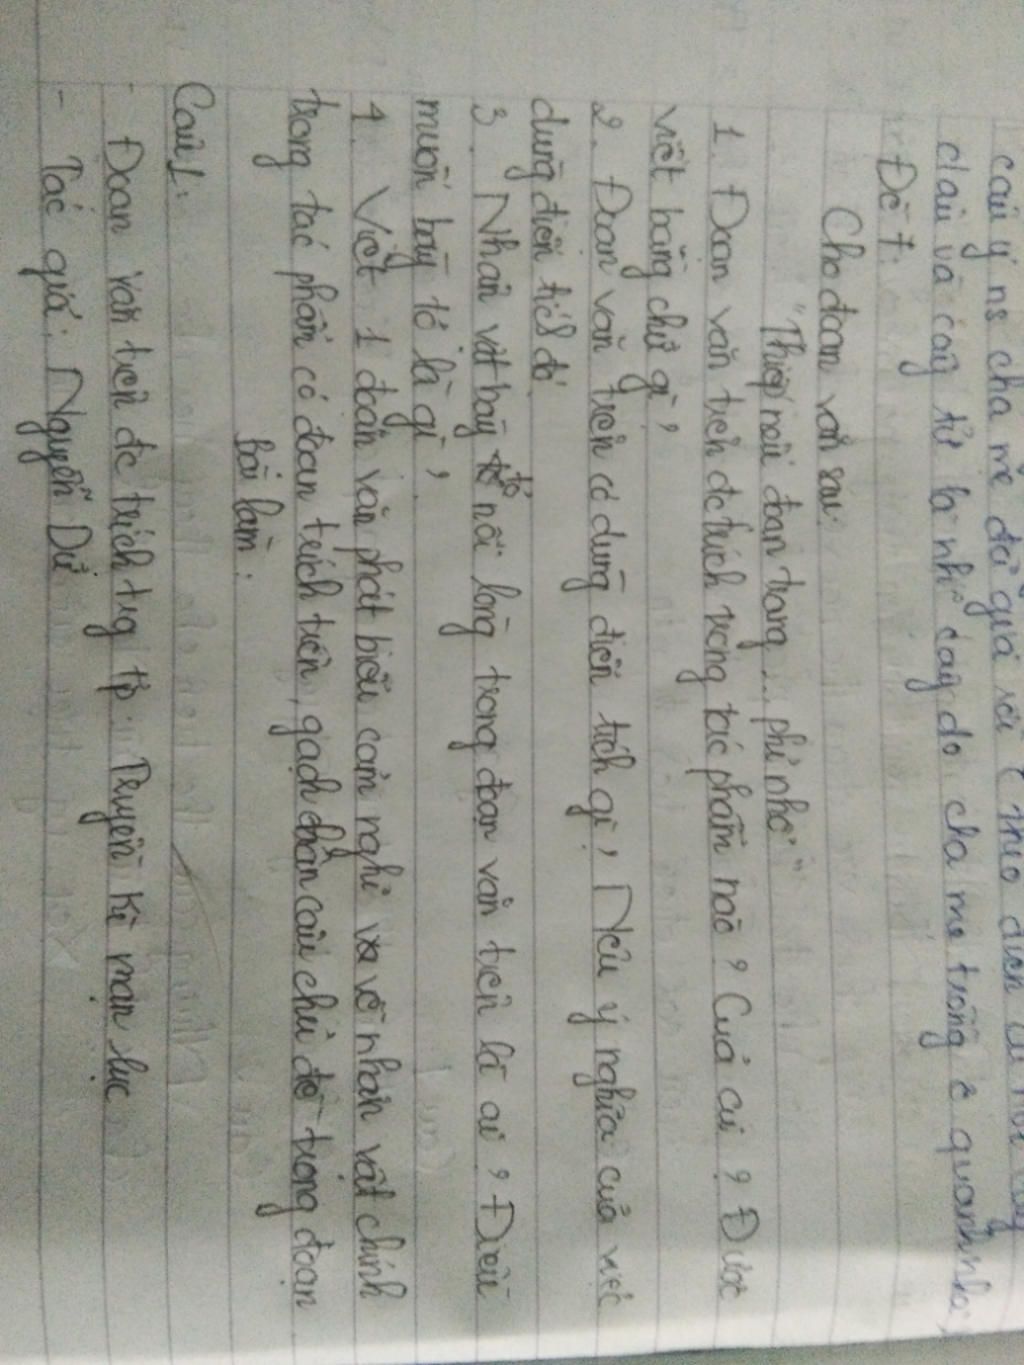 câu y ns cha mẹ đã già rồi
dâu và cây tử là nhỉ cây do cha mẹ trồng ở quanh nhà,
Đề 7:
Cho đoạn văn sau:
"Thiếp nếu đoan trang... phỉ nhổ"
1. Đoạn văn trên đc trích trong tác phẩm nào? Của ai? Được
viết bằng chữ gì?
2. Đoạn văn trên có dùng điển tích gì? Nêu ý nghĩa của việc
dùng điển tích đó
3. Nhân vật bày tỏ nỗi lòng trong đoạn văn trên là ai? Điều
muốn bày tỏ là gì?
4. Viết 1 đoạn văn phát biểu cảm nghĩ về nhân vật chính
trong tác phẩm có đoạn trích trên, gạch chân câu chủ đề trong đoạn
Bài làm:
Câu 1:
- Đoạn văn trên đc trích trg tp: Truyền kì mạn lục
- Tác giả: Nguyễn Dữ